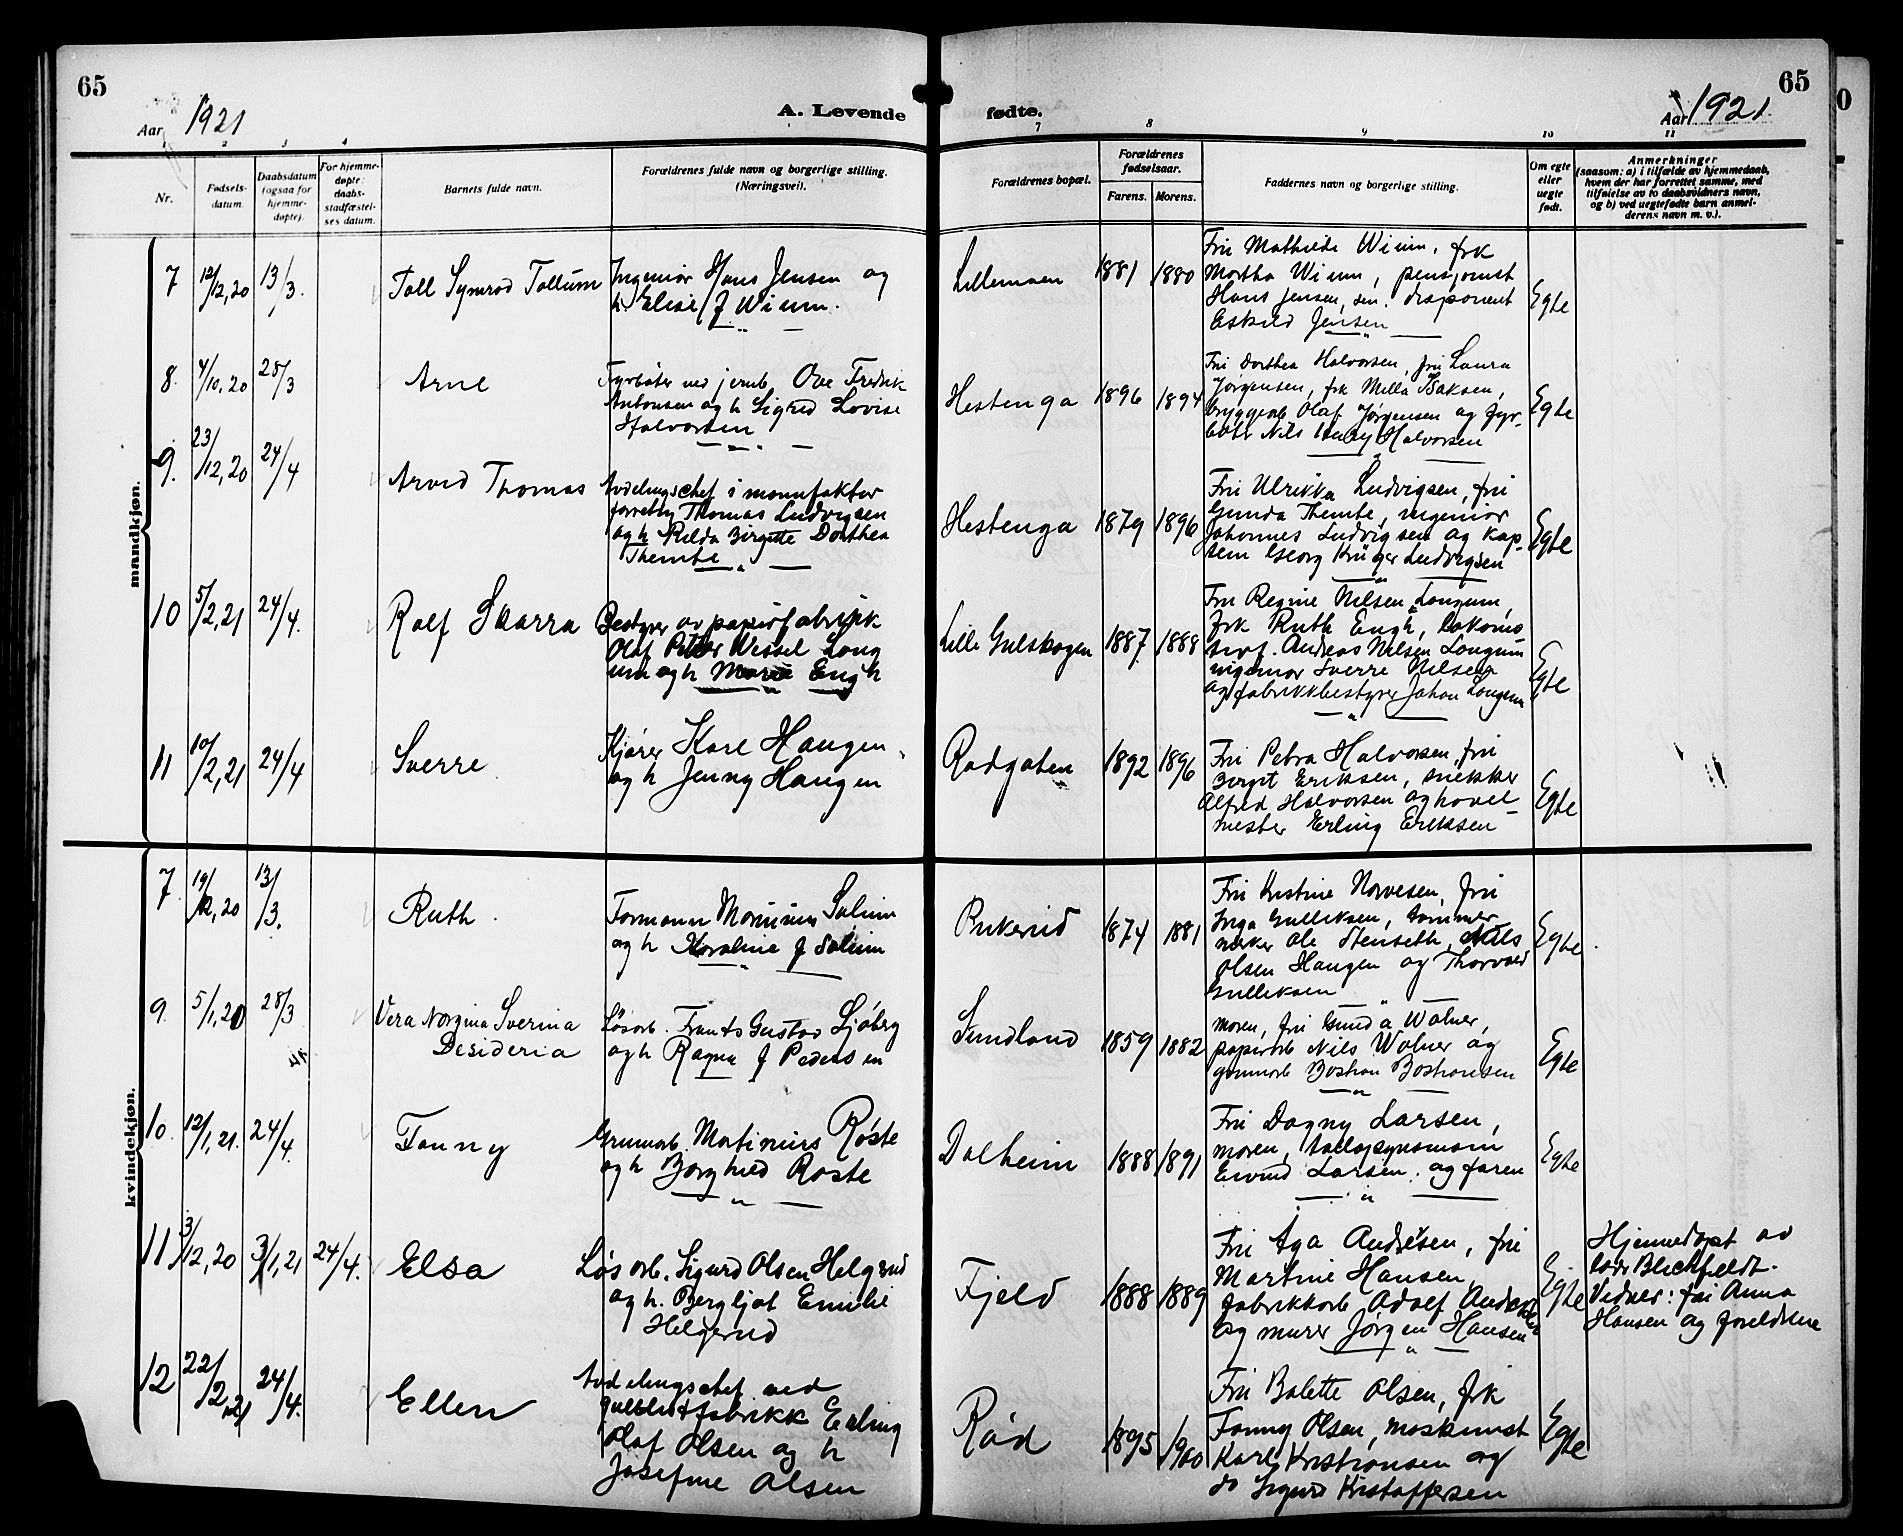 65
Aar 1921
A. Levende
fødte.
Aar 1921.
65
1 2 3 4 7 8 9 10 11
Nr.
Fødsels-
datum.
Daabsdatum
(ogsaa for
hjemme-
døpte).
For hjemme-
døpte:
daabs-
stadfæstel-
ses datum.
Barnets fulde navn.
Forældrenes fulde navn og borgerlige stilling.
(Næringsvei).
Forældrenes bopæl.
Forældrenes
fødselsaar.
Farens. Morens.
Faddernes navn og borgerlige stilling.
Om egte
eller
uegte
født.
Anmerkninger
(saasom: a) i tilfælde av hjemmedaab,
hvem der har forrettet samme, med
tilføielse av to daabsvidners navn,
og b) ved uegtefødte barn anmel-
derens navn m. v.).
mandkjøn.
7 12/12,20 13/3. Tall Symrod Tollum
Ingeniør Hans Jensen og
h. Elise f Wium.
Lillemoen 1881 1880
Fru Mathilde Wium, frk
Martha Wium, pensjonist
Hans Jensen, sen. disponent
Eskild Jensen
Egte
8. 4/10,20 28/3 Arne
Fyrbøter ved jernb. Ove Fredrik
Antonsen og h Sigrid Lovise
Halvorsen
Hestenga 1896 1894
Fru Dorthea Halvorsen, fru Laura
Jørgensen, frk Milla Isaksen,
bryggearb Olaf Jørgensen og fyr-
bøter Nils Halvorsen
Egte
9. 23/12,20 24/4 Arvid Thomas
Avdelingschef i manufaktur
forretng Thomas Ludvigsen
og h Hilda Birgitte Dorthea
Thembe
Hestenga 1879 1896
Fru Ulrikka Ludvigsen, fru
Gunda Thembe, ingeniør
Johannes Ludvigsen og kap-
tein Georg Krüger Ludvigsen
Egte
10 5/2,21 24/4. Rolf Skarra
Bestyrer av papirfabrikk
Olaf Peter Wessel Long
um og h Marie Engh
Lille Gulskogen 1887 1888
Fru Regine Nilsen Longum,
frk Ruth Engh, lokomo-
tivf. Andreas Nilsen Longum
ingeniør Sverre Nilsen
og fabrikkbestyrer Johan Longum
Egte
11 10/2,21 24/4 Sverre
Kjører Karl Haugen
og h Jenny Haugen
Rødgaten 1892 1896
Fru Petra Halvorsen, fru
Birgit Eriksen, snekker
Alfred Halvorsen og høvel-
mester Erling Eriksen
Egte
kvindekjøn.
7 19/12,20 13/3. Ruth.
Formann Marinius Solum
og h Karoline f Solum
Bukerud 1874 1881
Fru Kristine Norvesen, fru
Inga Gulliksen, tømmer
merker Ole Stenseth, Nils
Olsen Haugen og Thorvald
Gulliksen
Egte.
9. 5/1,20 28/3 Vera Norgina Sverina
Desideria
Løsarb. Frants Gustav Sjøberg
og h Ragna f Pedersen
Sundland 1859 1882
Moren, fru Gunda Wolner,
papirarb Nils Wolner og
grunnarb Bastian Bastiansen
Egte
10. 12/1,21. 24/4. Fanny
Grunnarb. Martinius Røste
og h Borghild Røste
Dalheim 1888 1891
Fru Dagny Larsen,
moren,
Eivind Larsen. og faren
Egte
11 3/12,20 3/1,21 24/4. Elsa
Løsarb. Sigurd Olsen Helgerud
og h. Bergljot Emilie
Helgerud
Fjeld 1888 1889
Fru Aga Andresen, fru
Martine Hansen,
fabrikkarb Adolf Andresen
og murer Jørgen Hansen
Egte
Hjemmedøpt av
Blichfeldt.
Vidner: fru Anna
Hansen og foreldrene
12 22/2,21 24/4. Ellen
Avdelingschef ved
gullistfabrikk Erling
Olaf Olsen og h
Josefine Olsen
Rød 1895 1900
Fru Bolette Olsen, frk
Fanny Olsen, maskinist
Karl Kristiansen og
do Sigurd Kristoffersen
Egte